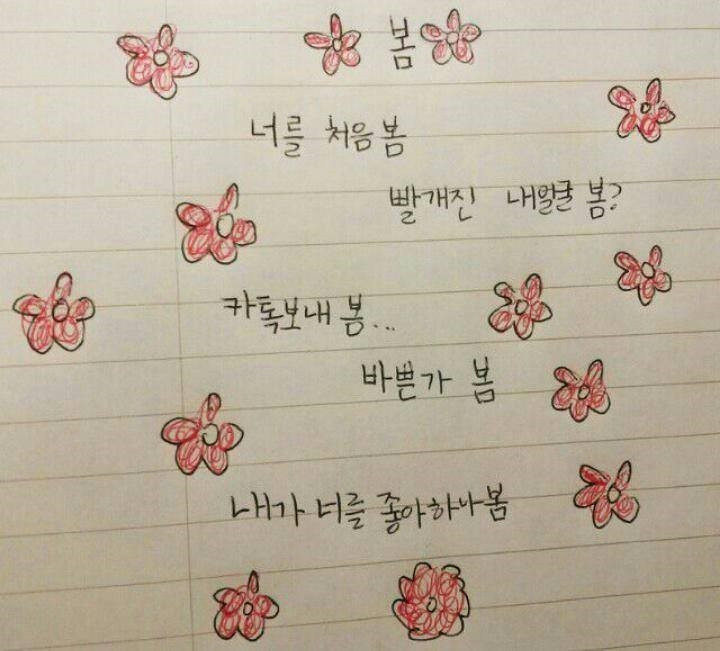 봄
너를 처음봄
빨개진 내얼굴 봄?
카톡보내 봄...
바쁜가 봄
내가 너를 좋아하나봄